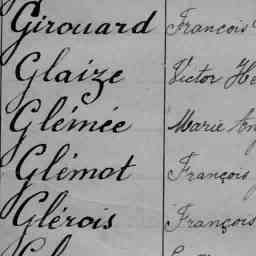 Girouard François
Glaize Victor
Glémée Marie
Glémot François
Glérois François